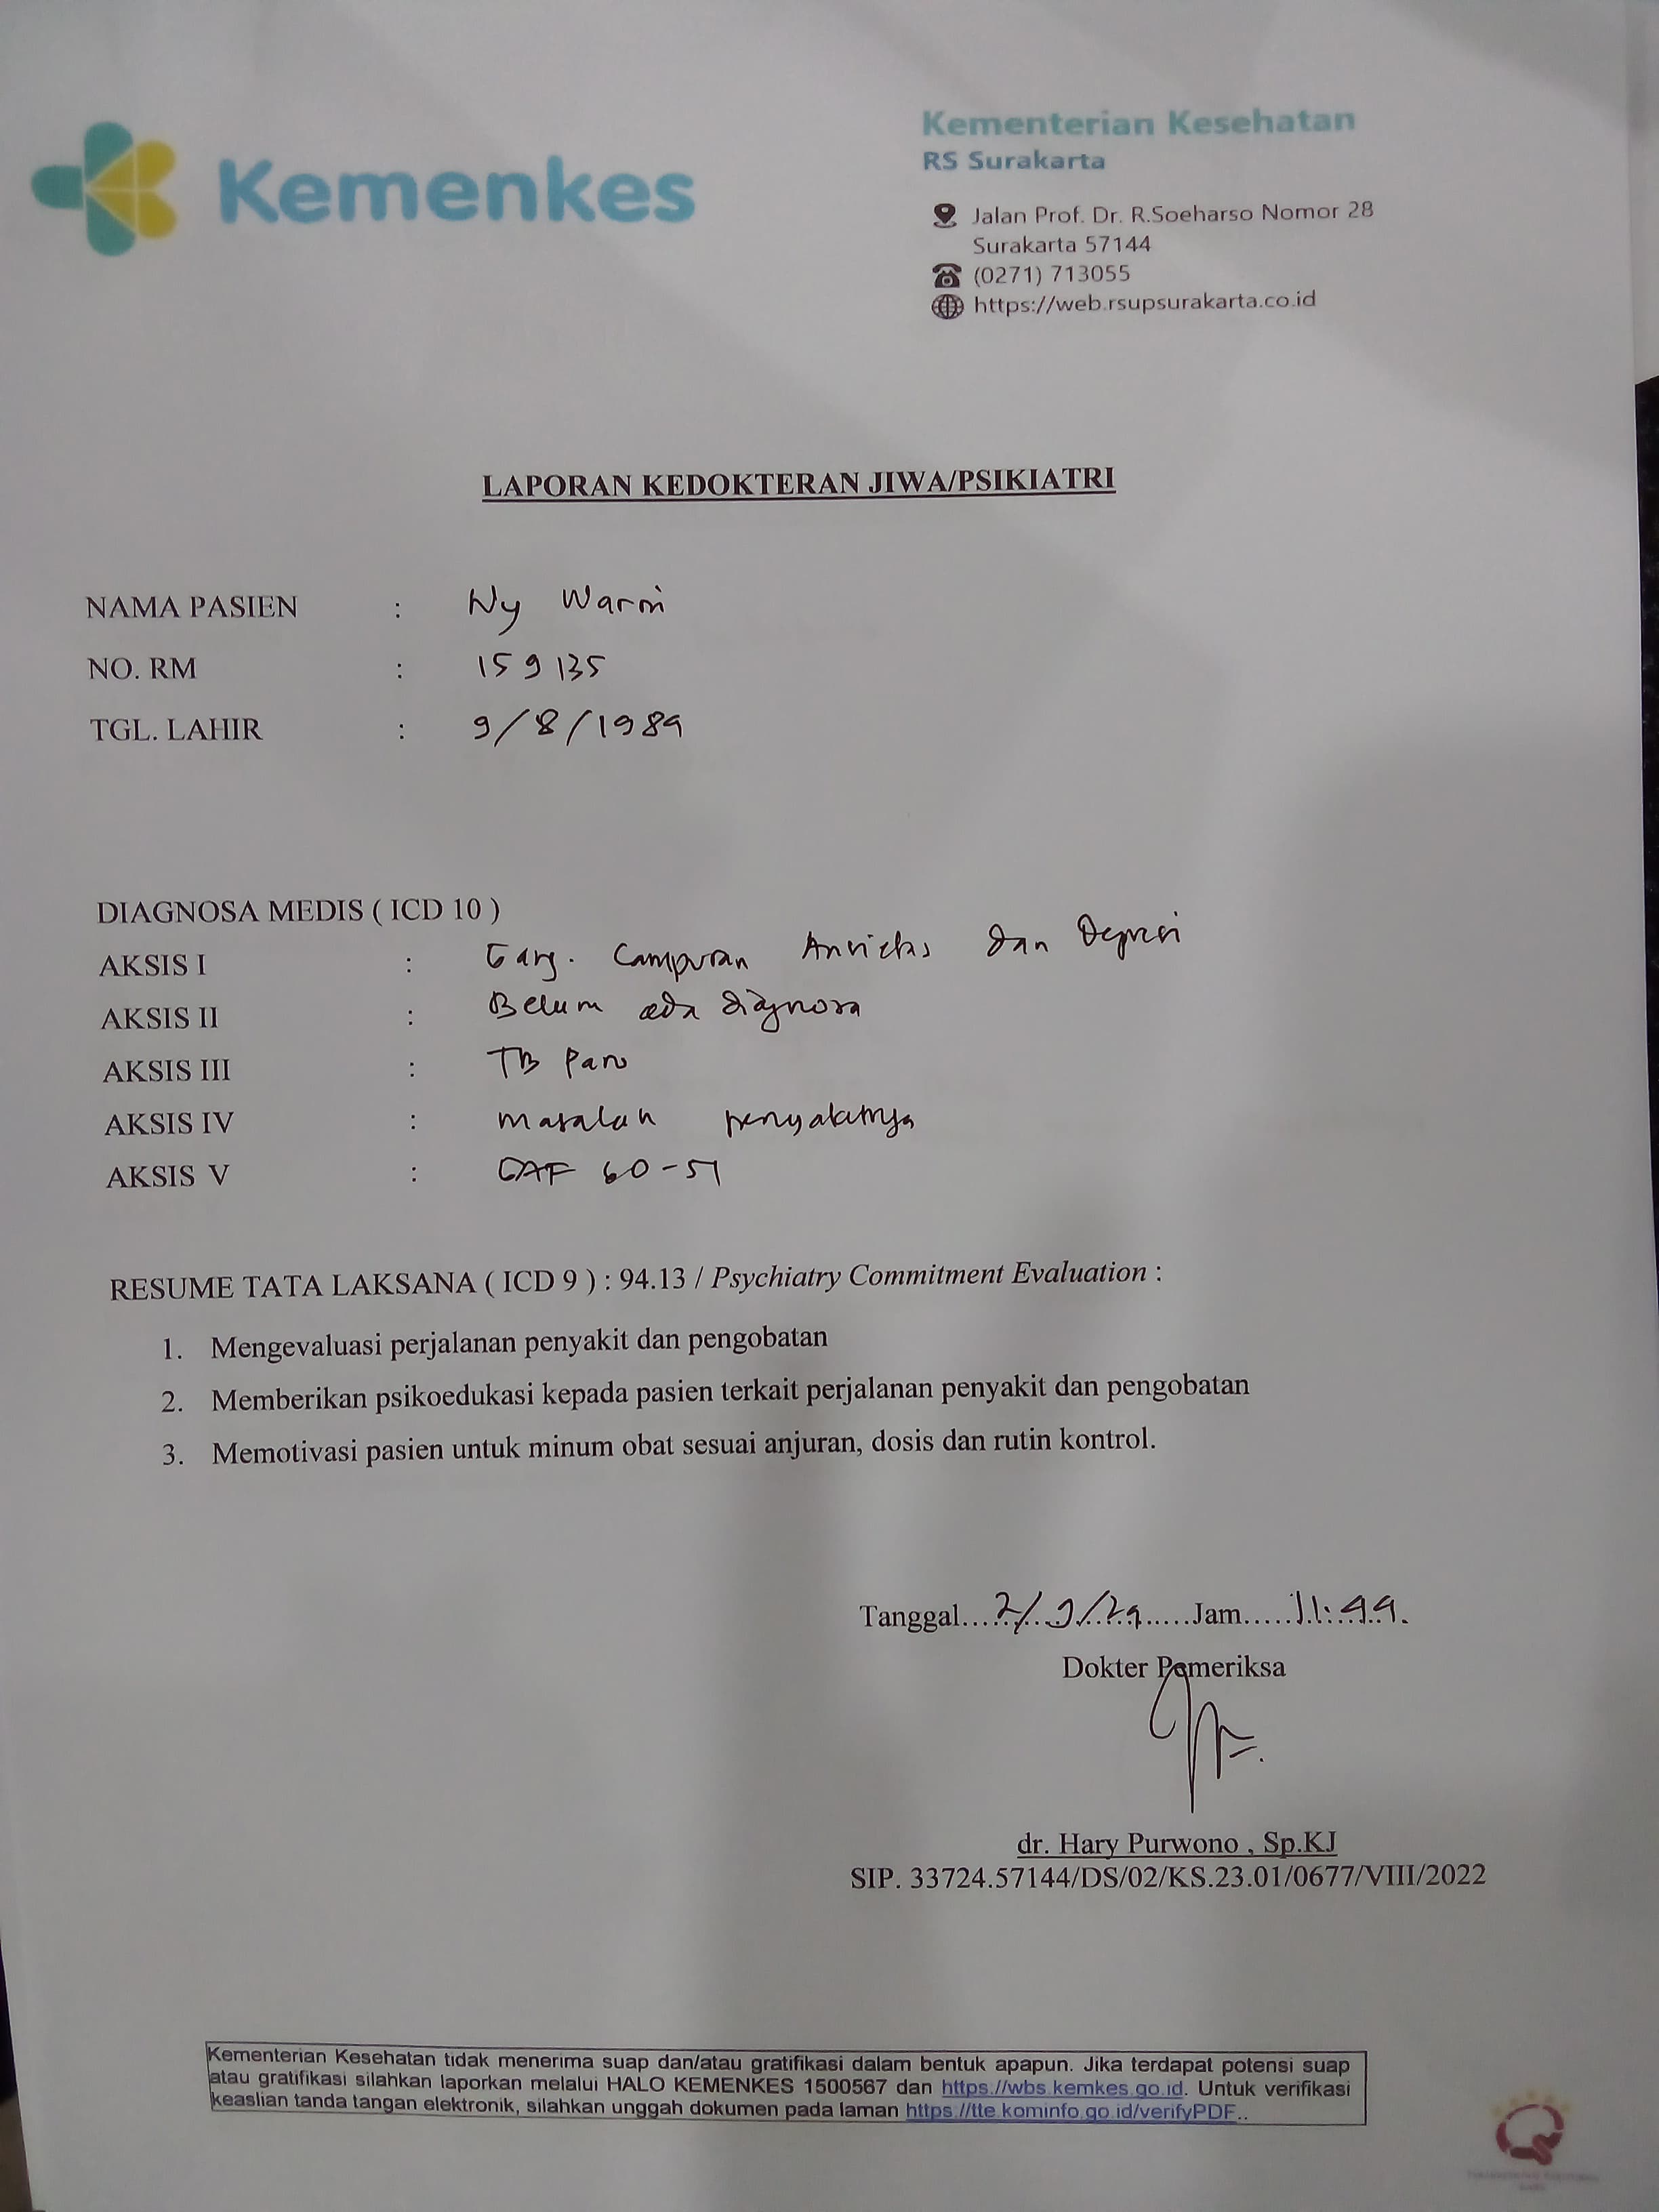 Kemenkes
Kementerian Kesehatan
RS Surakarta
Jalan Prof. Dr. R.Soeharso Nomor 28
Surakarta 57144
(0271) 713055
https://web.rsupsurakarta.co.id
LAPORAN KEDOKTERAN JIWA/PSIKIATRI
NAMA PASIEN : Ny
NO. RM : 159135
TGL. LAHIR : 9/8/1989
DIAGNOSA MEDIS ( ICD 10 )
AKSIS I : Gang. Campuran Anxietas dan Depresi
AKSIS II : Belum ada diagnosa
AKSIS III : TB Paru
AKSIS IV : masalah penyakitnya
AKSIS V : GAF 60-51
RESUME TATA LAKSANA ( ICD 9 ) : 94.13 / Psychiatry Commitment Evaluation :
1. Mengevaluasi perjalanan penyakit dan pengobatan
2. Memberikan psikoedukasi kepada pasien terkait perjalanan penyakit dan pengobatan
3. Memotivasi pasien untuk minum obat sesuai anjuran, dosis dan rutin kontrol.
Tanggal...2/9/24.....Jam.....11:44.
Dokter Pemeriksa
dr. Hary Purwono , Sp.KJ
SIP. 33724.57144/DS/02/KS.23.01/0677/VIII/2022
Kementerian Kesehatan tidak menerima suap dan/atau gratifikasi dalam bentuk apapun. Jika terdapat potensi suap
atau gratifikasi silahkan laporkan melalui HALO KEMENKES 1500567 dan https://wbs.kemkes.go.id. Untuk verifikasi
keaslian tanda tangan elektronik, silahkan unggah dokumen pada laman https://tte.kominfo.go.id/verifyPDF..